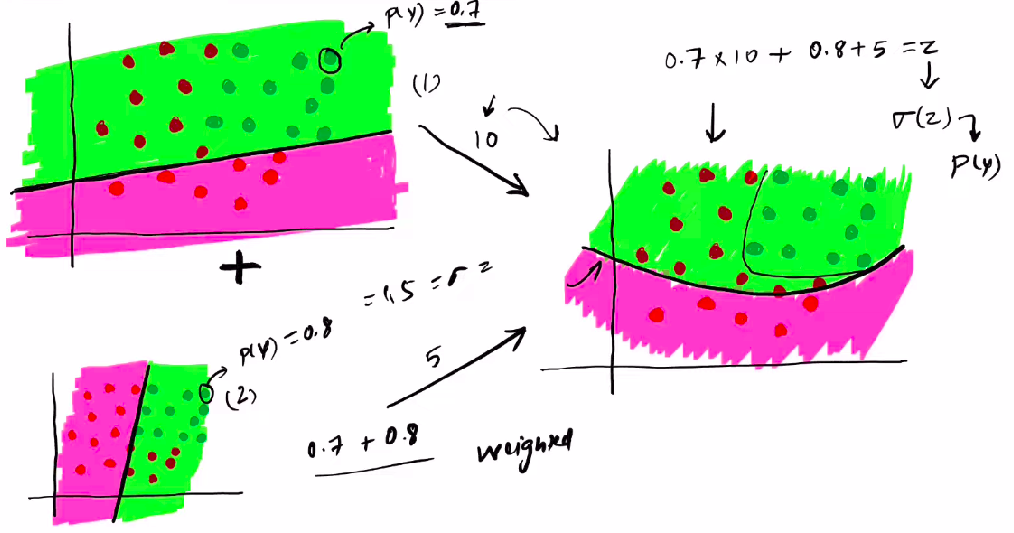 p(y) = 0.7
(1)
10
0.7 x 10 + 0.8 + 5 = z
σ(z)
p(y)
+
p(y) = 0.8
(2)
= 1.5 = σ =
5
0.7 + 0.8
weighted